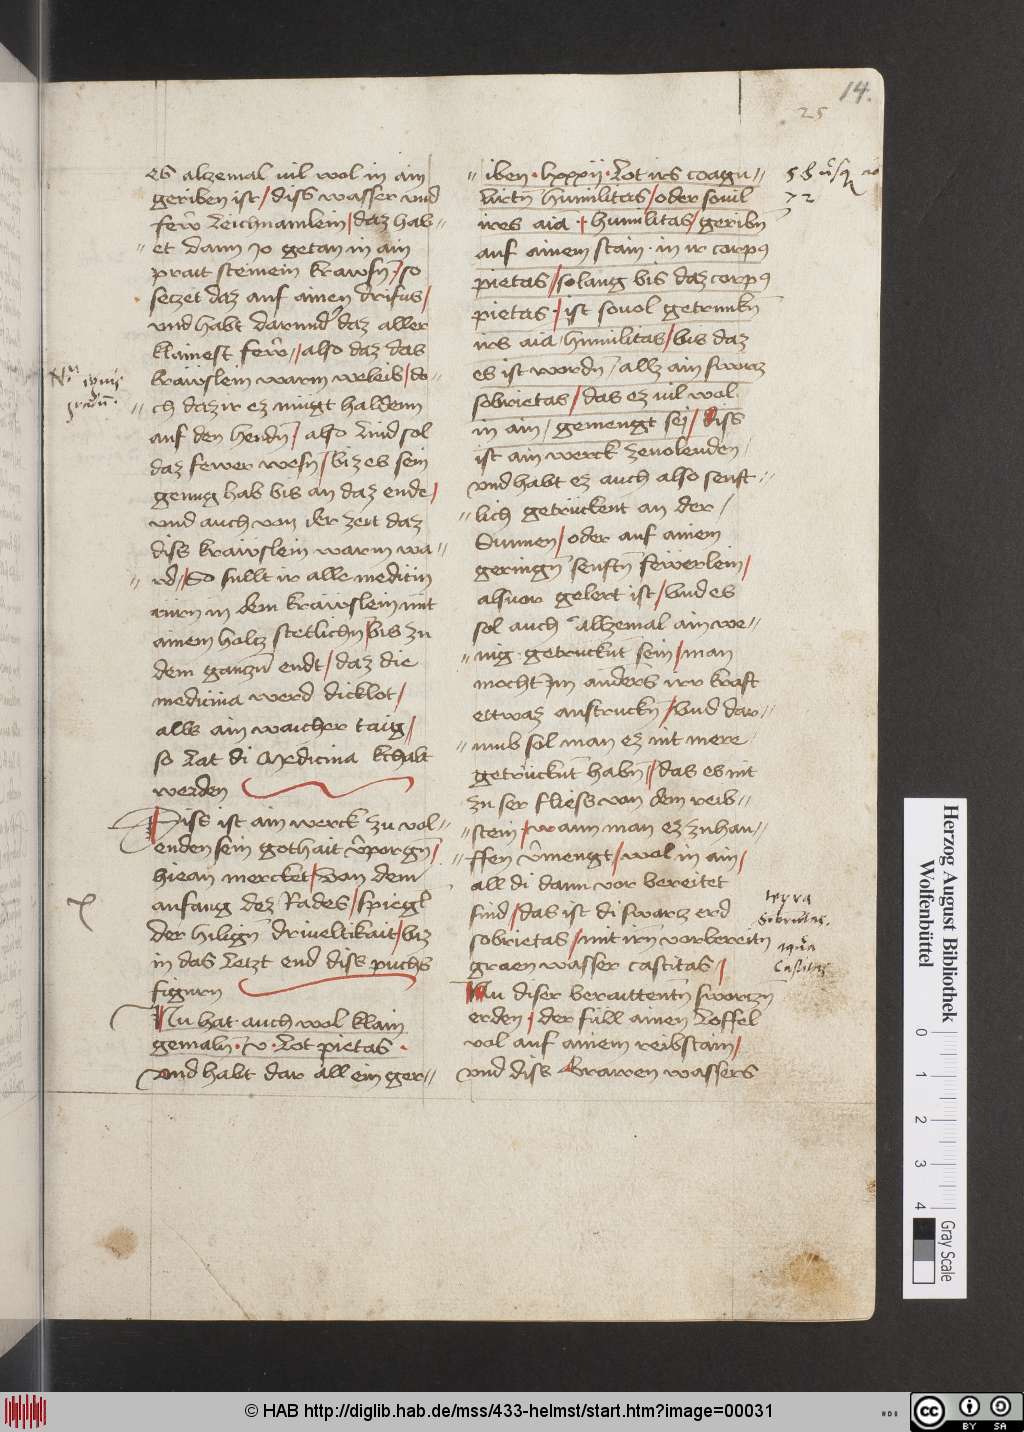 14.
25
es alzemal uil wol in ain
geriben ist / diss wasser und
fewr Leichnamlein / daz hab
et dann 70 getan in ain
prait steinein krawsn / so
seczet daz auf ainen drifus /
vnd habt darund daz aller
klainest fewr / also daz das
krawslein warm weleib / do
ch daz ir ez mügt halden
auf den hendn / also Lind sol
daz fewer wesn / biz es sein
genug hab bis an daz ende /
vnd auch von der zeit daz
diss krawslein warm wa
rd / So sullt ir alle medicin
rürn in dem krawslein mit
ainem holcz stetlichn / bis zu
dem ganczn endt / daz die
medicina werd dicklot /
alls ain waicher taig /
so Lat di Medicina kchalt
werden
Diss ist ain werck zu vol
enden sein gothait vporgn /
hiean mercket / Von dem
anfang dez Rades / spiegl
der hilign driueltikait / biz
in das Letzt end diss puchs
figurn
Nu hat auch wol klain
gemaln · v · Lot pietas ·
vnd habt dar all ein ger
iben · Lxxxij · Lot irs coagu
Lirtn humilitas / oder souil
irs aia · humilitas / geribn
auf ainem stain · in ir corp9
pietas / solang bis daz corp9
pietas · / ist souol getrunkn
irs aia / humilitas / bis daz
es ist wordn / allz ain swarz
sobrietas / das ez uil wol
in ain / gemengt sej / diss
ist ain werck zeuolenden /
vnd habt ez auch also senft
lich getrückent an der /
Sunnen / oder auf ainem
geringn senftn fewerlein /
alsuor gelert ist / Vnd es
sol auch allzemal ain we
nig getruckut sein / man
mocht Im anders irr kraft
ettwaz austruckn / Vnd dar
umb sol man ez nit mere
getrückut habn / das es nit
zu ser fliess von dem reib
stein / wann man ez zuhau
ffen vmengt / wol in ain /
all di dann vor bereitet
sind / das ist di swarcz erd
sobrietas / mit irn vorbereitn
graen wasser castitas /
terra
Sobrietas
aqua
Castitas
Nu diser beraittentn swarczn
erden / der füll ainen Löffel
vol auf ainem reibstain /
vnd diss Grawen wassers
Herzog August Bibliothek
Wolfenbüttel
0 1 2 3 4
Gray Scale
© HAB http://diglib.hab.de/mss/433-helmst/start.htm?image=00031
HAB
CC BY SA